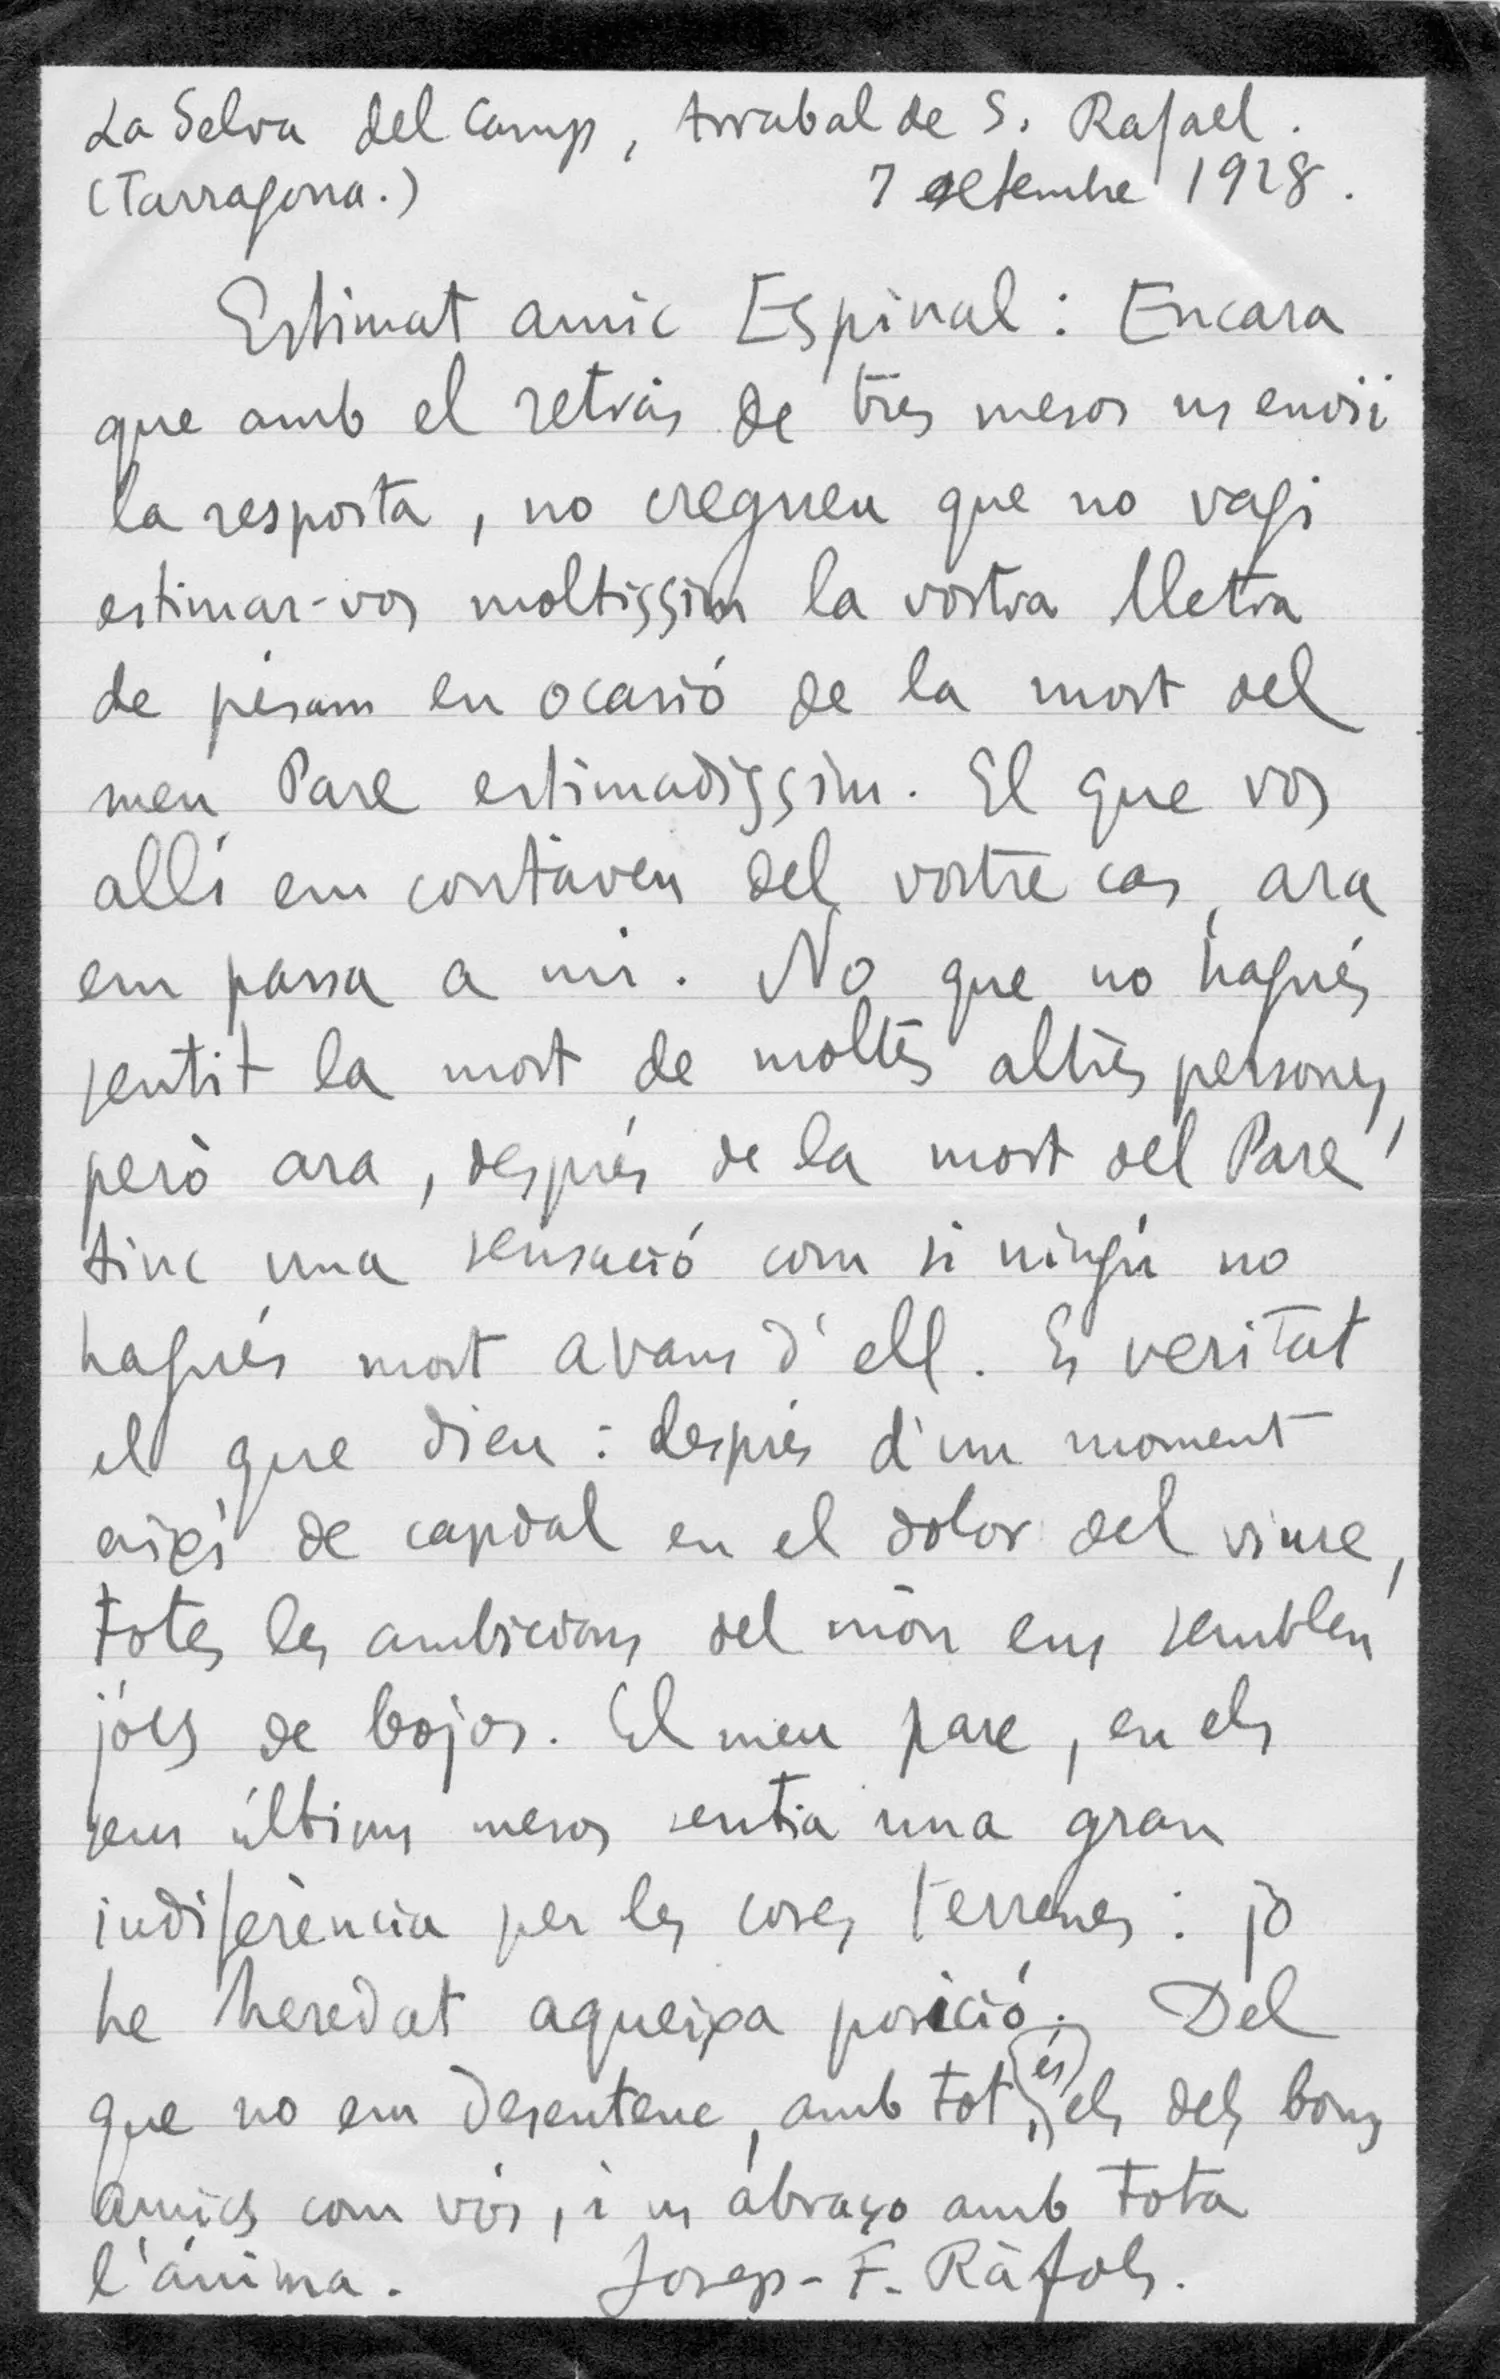 La Selva del Camp, Arrabal de S. Rafael.
(Tarragona.) 7 setembre 1928.
Estimat amic Espinal: Encara
que amb el retràs de tres mesos us envii
la resposta, no cregueu que no vagi
estimar-vos moltissim la vostra lletra
de pésam en ocasió de la mort del
meu Pare estimadissim. El que vos
allí em contàveu del vostre cas, ara
em passa a mi. No que no hagués
sentit la mort de moltes altres persones,
però ara, després de la mort del Pare
tinc una sensació com si ningú no
hagués mort avans d'ell. Es veritat
el que dieu: després d'un moment
aixi de capdal en el dolor del viure,
totes les ambicions del món ens semblen
jócs de bojos. El meu pare, en els
seus últims mesos sentia una gran
indiferència per les coses terrenes: jo
he heredat aqueixa posició. Del
que no em desentenc, amb tot, és dels bons
amics com vós, i us abraço amb tota
l'ánima. Josep-F. Ràfols.